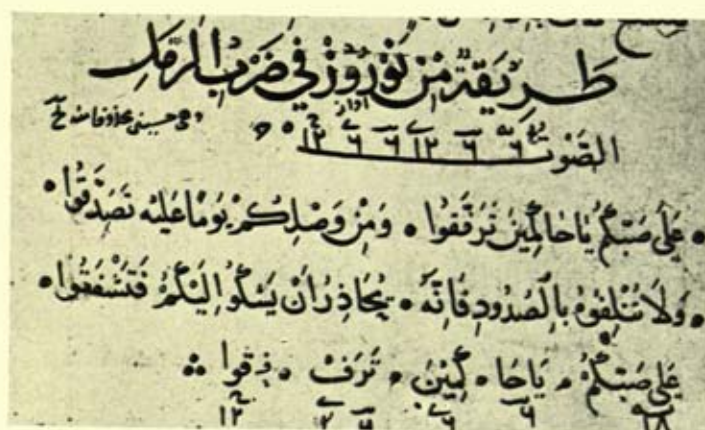 طَرِيقَةٌ مِنْ نَوْرُوزْ فِي ضَرْبِ الرَّمَلِ
الصَّوْت ٦ ٦ ١٢ ٦ ٦ ١٢
عَلَى صَبِّكُمْ يَا حَاكِمِينَ تَرَفَّقُوا • وَمِنْ وَصْلِكُمْ يَوْمًا عَلَيْهِ تَصَدَّقُوا •
• وَلَا تُتْلِفُوهُ بِالصُّدُودِ فَإِنَّهُ • يُحَاذِرُ أَنْ يَشْكُو إِلَيْكُمْ فَتُشْفِقُوا •
عَلَى صَبِّكُمْ • يَا حَا • كِمِينَ • تَرَفْ • فِقُوا
١٨ ٦ ٦ ٦ ١٢